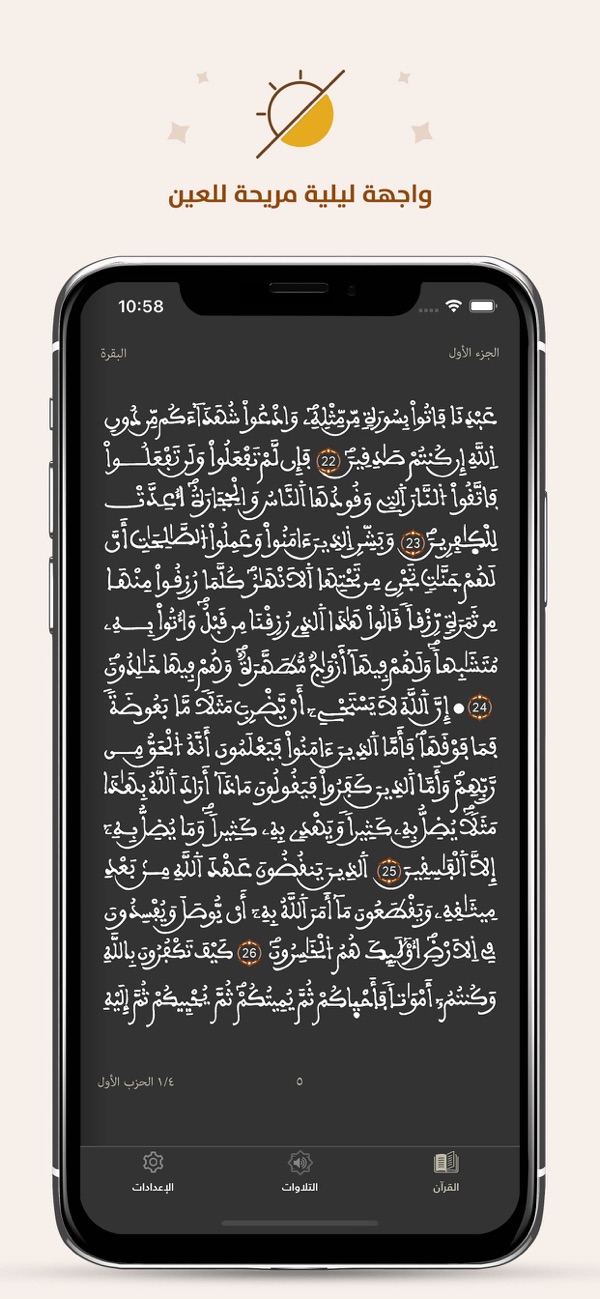 واجهة ليلية مريحة للعين
10:58
الجزء الأول
البقرة
عَبْدِنَا فَاتُواْ بِسُورَةٖ مِّن مِّثْلِهِۦ وَادْعُواْ شُهَدَآءَكُم مِّن دُونِ
اِ۬للَّهِ إِن كُنتُمْ صَٰدِقِينَۖ 22 فَإِن لَّمْ تَفْعَلُواْ وَلَن تَفْعَلُواْ
فَاتَّقُواْ اُ۬لنَّارَ اَ۬لتِے وَقُودُهَا اَ۬لنَّاسُ وَالْحِجَارَةُۖ أُعِدَّتْ
لِلْكٰ۪فِرِينَۖ 23 وَبَشِّرِ اِ۬لذِينَ ءَامَنُواْ وَعَمِلُواْ اُ۬لصَّٰلِحَٰتِ أَنَّ
لَهُمْ جَنَّٰتٖ تَجْرِے مِن تَحْتِهَا اَ۬لَانْهَٰرُۖ كُلَّمَا رُزِقُواْ مِنْهَا
مِن ثَمَرَةٖ رِّزْقاٗ قَالُواْ هَٰذَا اَ۬لذِے رُزِقْنَا مِن قَبْلُۖ وَأُتُواْ بِهِۦ
مُتَشَٰبِهاٗۖ وَلَهُمْ فِيهَآ أَزْوَٰجٞ مُّطَهَّرَةٞۖ وَهُمْ فِيهَا خَٰلِدُونَۖ
24 إِنَّ اَ۬للَّهَ لَا يَسْتَحْيِۦٓ أَنْ يَّضْرِبَ مَثَلاٗ مَّا بَعُوضَةٗ
فَمَا فَوْقَهَاۖ فَأَمَّا اَ۬لذِينَ ءَامَنُواْ فَيَعْلَمُونَ أَنَّهُ اُ۬لْحَقُّ مِن
رَّبِّهِمْۖ وَأَمَّا اَ۬لذِينَ كَفَرُواْ فَيَقُولُونَ مَاذَآ أَرَادَ اَ۬للَّهُ بِهَٰذَا
مَثَلاٗۖ يُضِلُّ بِهِۦ كَثِيراٗ وَيَهْدِے بِهِۦ كَثِيراٗۖ وَمَا يُضِلُّ بِهِۦٓ
إِلَّا اَ۬لْفَٰسِقِينَ 25 اَ۬لذِينَ يَنقُضُونَ عَهْدَ اَ۬للَّهِ مِنۢ بَعْدِ
مِيثَٰقِهِۦ وَيَقْطَعُونَ مَآ أَمَرَ اَ۬للَّهُ بِهِۦٓ أَنْ يُّوصَلَ وَيُفْسِدُونَ
فِے اِ۬لَارْضِۖ أُوْلَٰٓئِكَ هُمُ اُ۬لْخَٰسِرُونَۖ 26 كَيْفَ تَكْفُرُونَ بِاللَّهِ
وَكُنتُمُۥٓ أَمْوَٰتاٗ فَأَحْيٰ۪اكُمْۖ ثُمَّ يُمِيتُكُمْۖ ثُمَّ يُحْيِيكُمْ ثُمَّ إِلَيْهِ
٥
١/٤ الحزب الأول
القرآن
التلاوات
الإعدادات